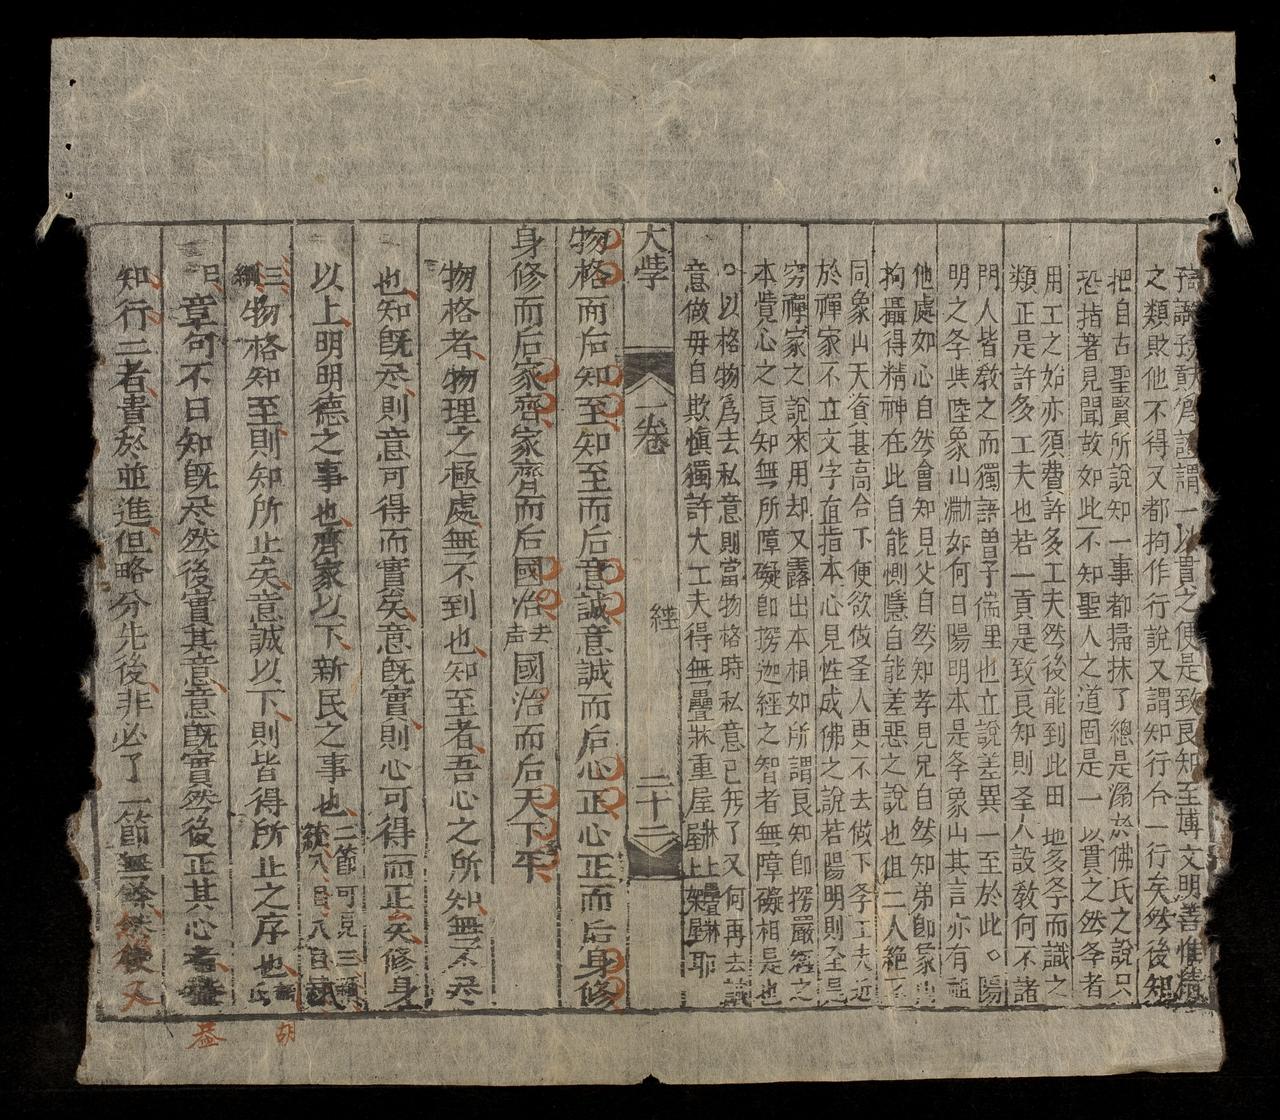 之類敗他不得又都拘作行說又謂知行合一行矣然後知
把自古聖賢所說知一事都掃抹了總是溺於佛氏之說只
恐指著見聞故如此不知聖人之道固是一以貫之然斈者
用工之始亦須費許多工夫然後能到此田地多斈而識之
類正是許多工夫也若一貫是致良知則圣人設敎何不諸
門人皆敎之而獨語曾子
也立說差異一至於此○陽
明之斈與陸象山
如何曰陽明本是斈象山其言亦有祖
他處如心自然會知見父自然知孝見兄自然知弟卽象山
拘攝得精神在此自能惻隱自能羞惡之說也但二人絶不
同象山天資甚高合下便欲做圣人更不去做下斈工夫近
於禪家不立文字直指本心見性成佛之說若陽明則全是
窮禪家之說來用却又露出本相如所謂良知卽楞嚴
之
本覺心之良知無所障礙卽楞迦經之智者無障礙相是也
○以格物爲去私意則當物格時私意已無了又何再去誠
意做毋自欺愼獨許大工夫得無疊牀重屋牀上疊牀屋上架屋耶
大學
一卷
經
二十二
物格而后知至知至而后意誠意誠而后心正心正而后身修
身修而后家齊家齊而后國治去声國治而后天下平
物格者物理之極處無不到也知至者吾心之所知無不尽
也知旣尽則意可得而實矣意旣實則心可得而正矣修身
以上明明德之事也齊家以下新民之事也二節可見三綱統八目八目
三綱物格知至則知所止矣意誠以下則皆得所止之序也
章句不曰知旣尽然後實其意意旣實然後正其心者蓋
知行二者貴於並進但略分先後非必了一節無餘然後又
胡
益